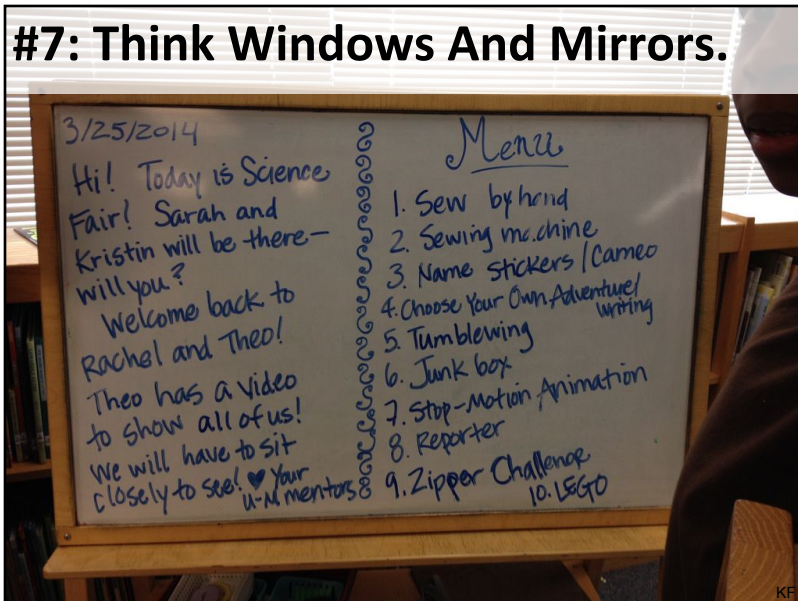 #7: Think Windows And Mirrors.
3/25/2014
Hi! Today is Science
Fair! Sarah and
Kristin will be there—
will you?
Welcome back to
Rachel and Theo!
Theo has a video
to show all of us!
We will have to sit
closely to see! ♥ Your
U-M mentors
Menu
1. Sew by hand
2. Sewing machine
3. Name stickers / Cameo
4. Choose Your Own Adventure/
writing
5. Tumblewing
6. Junk box
7. Stop-Motion Animation
8. Reporter
9. Zipper Challenge
10. LEGO
KF